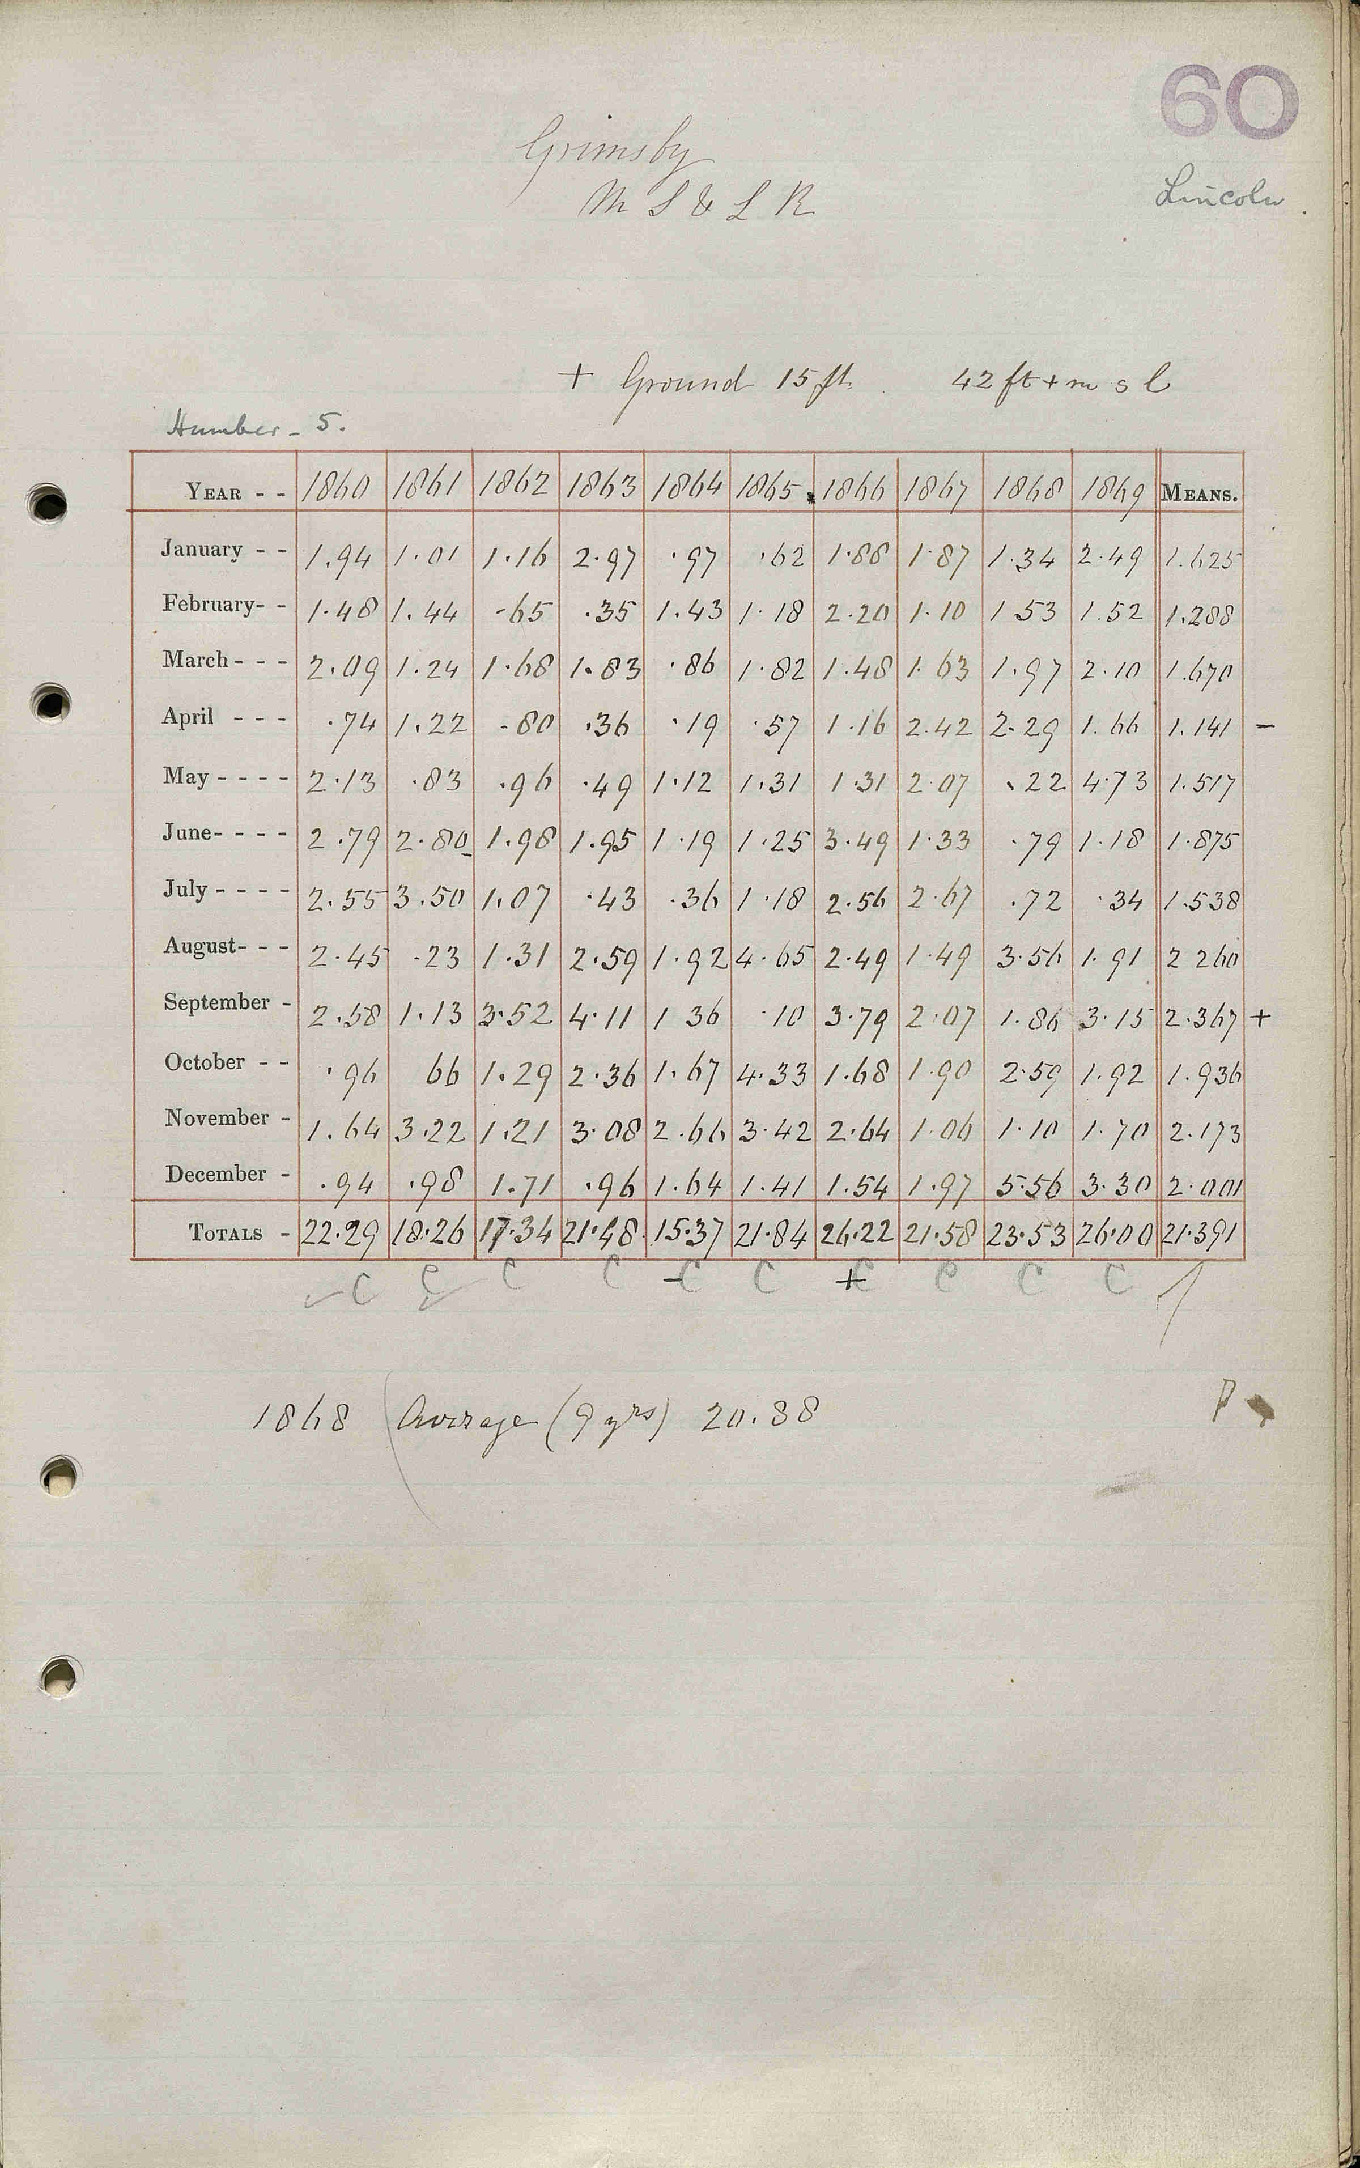 60
Grimsby
Lincoln
M S & L R
+ Ground 15 ft. 42 ft + m s l
Humber - 5.
YEAR - - 1860 1861 1862 1863 1864 1865 1866 1867 1868 1869 MEANS.
January - - 1.94 1.01 1.16 2.97 .97 .62 1.88 1.87 1.34 2.49 1.625
February- - 1.48 1.44 .65 .35 1.43 1.18 2.20 1.10 1.53 1.52 1.288
March - - - 2.09 1.24 1.68 1.83 .86 1.82 1.48 1.63 1.97 2.10 1.670
April - - - .74 1.22 .80 .36 .19 .57 1.16 2.42 2.29 1.66 1.141 -
May - - - - 2.13 .83 .96 .49 1.12 1.31 1.31 2.07 .22 4.73 1.517
June- - - - 2.79 2.80 1.98 1.95 1.19 1.25 3.49 1.33 .79 1.18 1.875
July - - - - 2.55 3.50 1.07 .43 .36 1.18 2.56 2.67 .72 .34 1.538
August- - - 2.45 .23 1.31 2.59 1.92 4.65 2.49 1.49 3.56 1.91 2 260
September - 2.58 1.13 3.52 4.11 1 36 .10 3.79 2.07 1.86 3.15 2.367 +
October - - .96 66 1.29 2.36 1.67 4.33 1.68 1.90 2.59 1.92 1.936
November - 1.64 3.22 1.21 3.08 2.66 3.42 2.64 1.06 1.10 1.70 2.173
December - .94 .98 1.71 .96 1.64 1.41 1.54 1.97 5.56 3.30 2.001
TOTALS - 22.29 18.26 17.34 21.48 15.37 21.84 26.22 21.58 23.53 26.00 21.391
C C C C - C C + C C C C
1868 (Average (9 yrs) 20.88
P